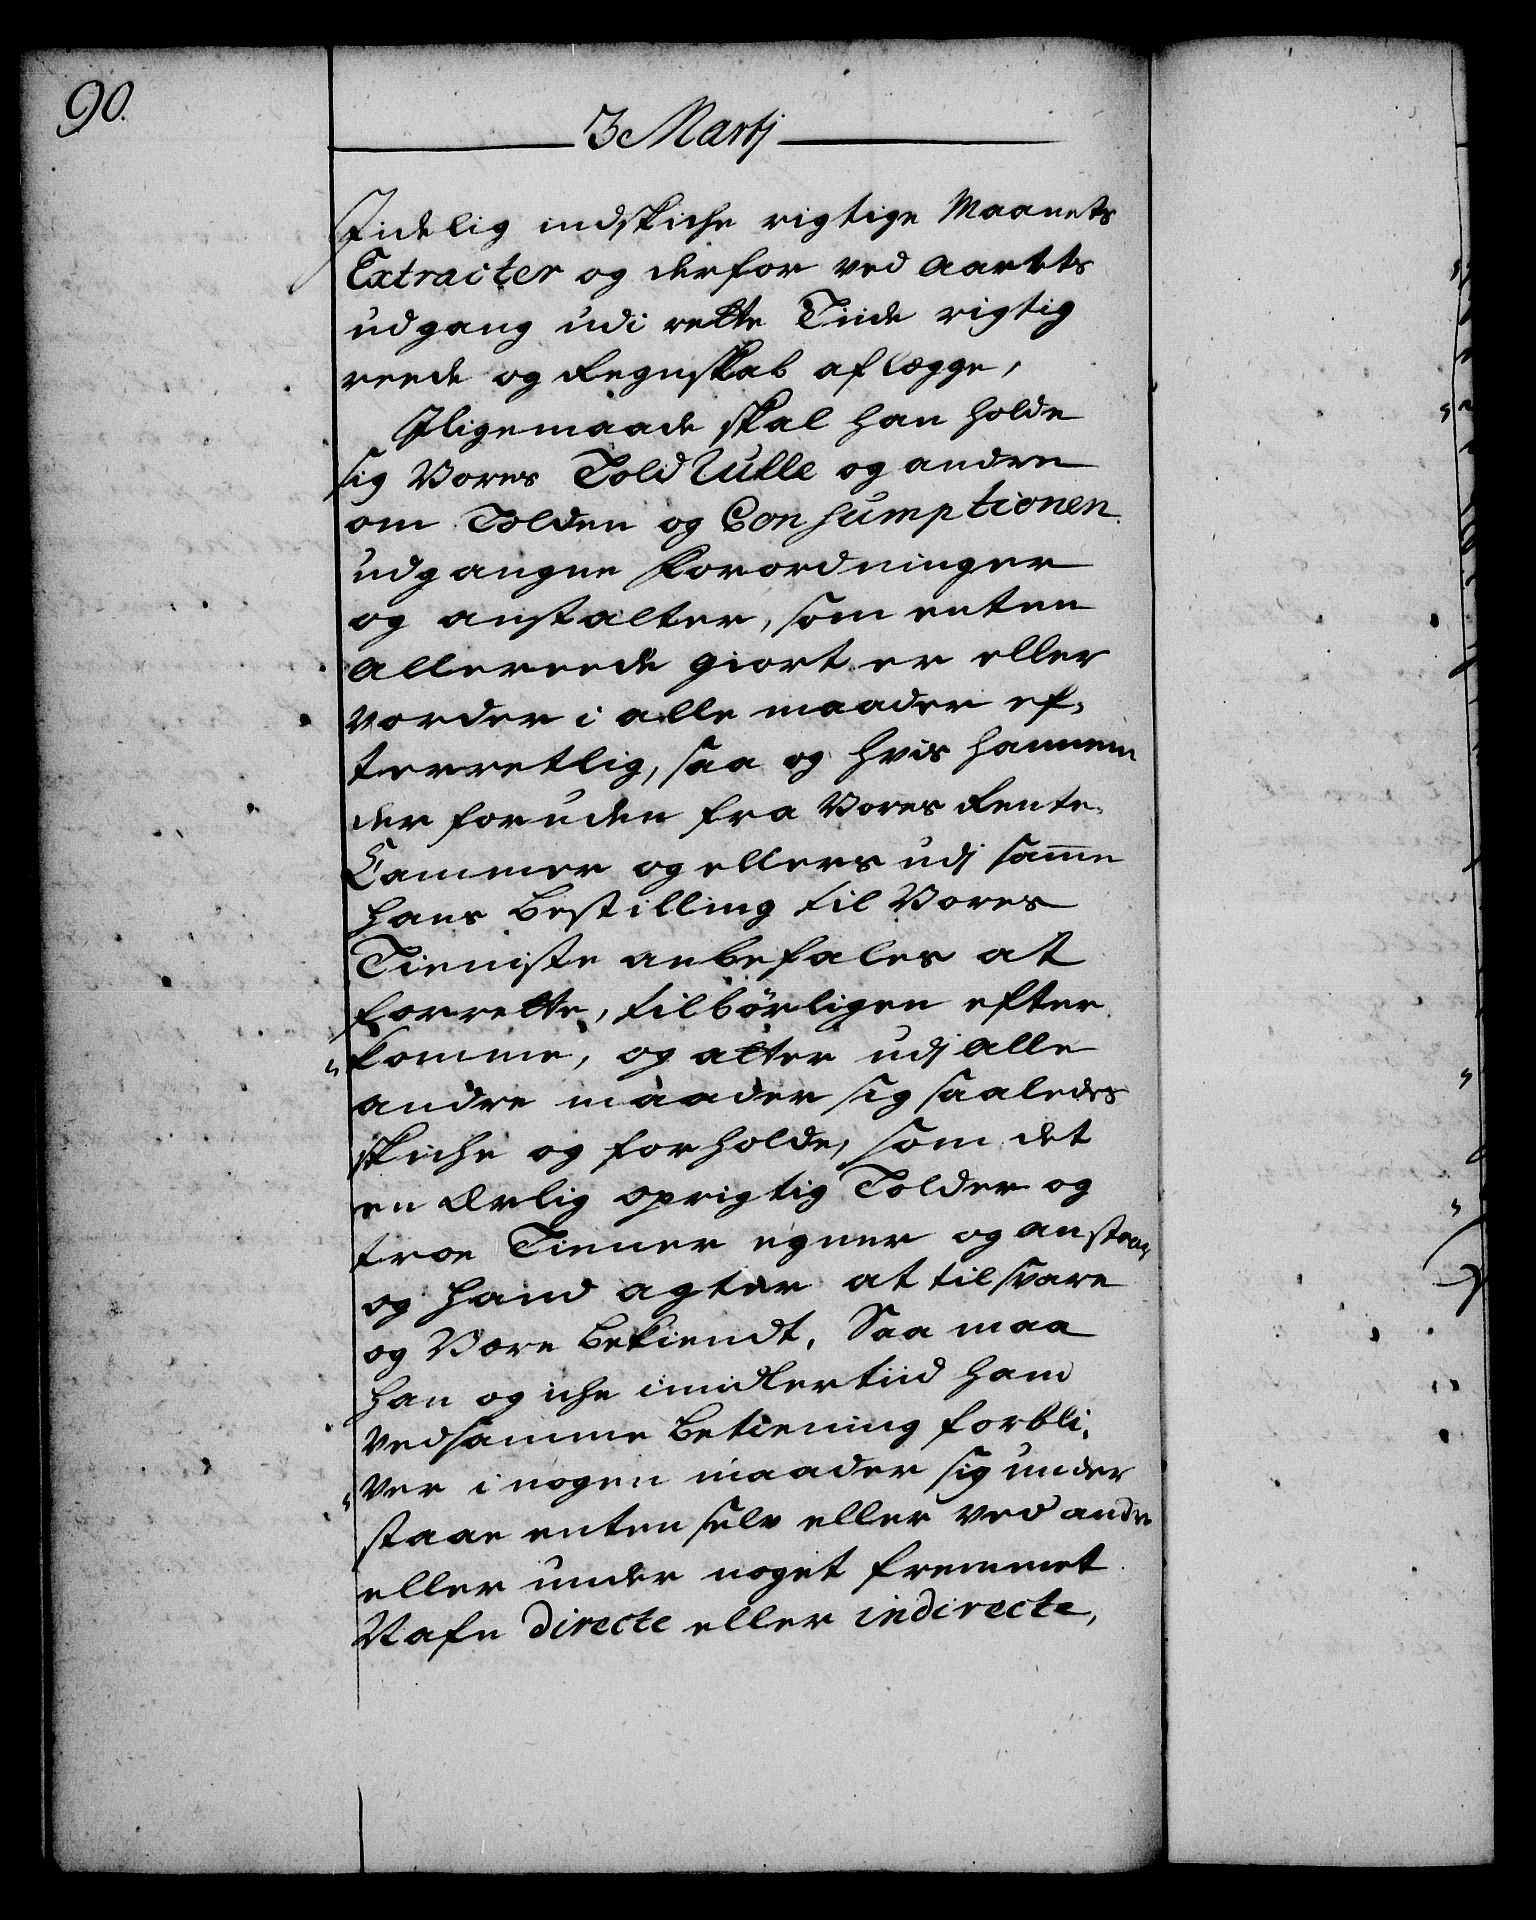 90.
3 Martj
Tidelig indskiche rigtige Maanets
Extracter og derfor ved aarets
udgang udi rette Tiide rigtig
reede og Regnskab aflegge,
Iligemaade skal han holde
sig Vores Told Rulle og andre
om Tolden og Consumptionen
udgangne Forordninger
og anstalter, som enten
allereede giort er eller
vorder i alle maader ef,
terretlig, saa og hvis hannem
der foruden fra Vores Rente
Cammer og ellers udj samme
hans bestilling til Vores
Tieniste anbefales at
forrette, tilbørligen efter
komme, og atter udj alle
andre maader sig saaledes
skiche og forholde, som det
en Ærlig oprigtig Tolder og
troe Tiener egner og anstaar
og hand agter at tilsvare
og Være bekiendt. Saa maa
han og iche imidlertiid hand
ved samme betiening forbli,
ver i nogen maader sig under
staae enten selv eller ved andre
eller under noget fremmet
Nafn directe eller indirecte,